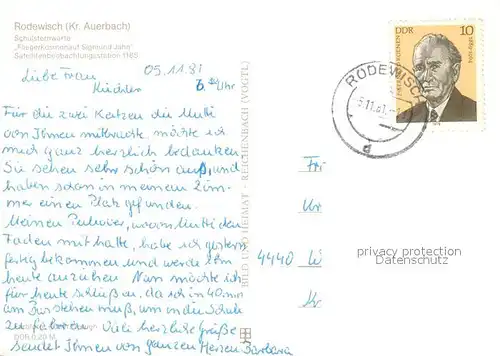 Rodewisch (Kr. Auerbach)
Schulsternwarte
„Fliegerkosmonaut Sigmund Jähn“
Satellitenbeobachtungsstation 1185
05.11.81
Liebe Frau Küchler 6.30 Uhr
Für die zwei Katzen die Mutti
von Ihnen mitbrachte, möchte ich
mich ganz herzlich bedanken
Sie sehen sehr schön aus, und
haben schon in meinem Zim-
mer einen Platz gefunden.
Meinen Pullover, wovon Mutti den
Faden mit hatte, habe ich gestern
fertig bekommen und werde ihn
heute anzuhen. Nun möchte ich
für heute schließen, da ich in 40 min
am Bus stehen muß, um in die Schule
zu fahren. Viele herzliche Grüße
sendet Ihnen von ganzen Herzen Barbara
DDR 0,20 M
BILD UND HEIMAT · REICHENBACH (VOGTL)
DDR 10
1869-1974
RODEWISCH
5.11.81
Fr
Ur
4440
Kr
privacy protection
Datenschutz